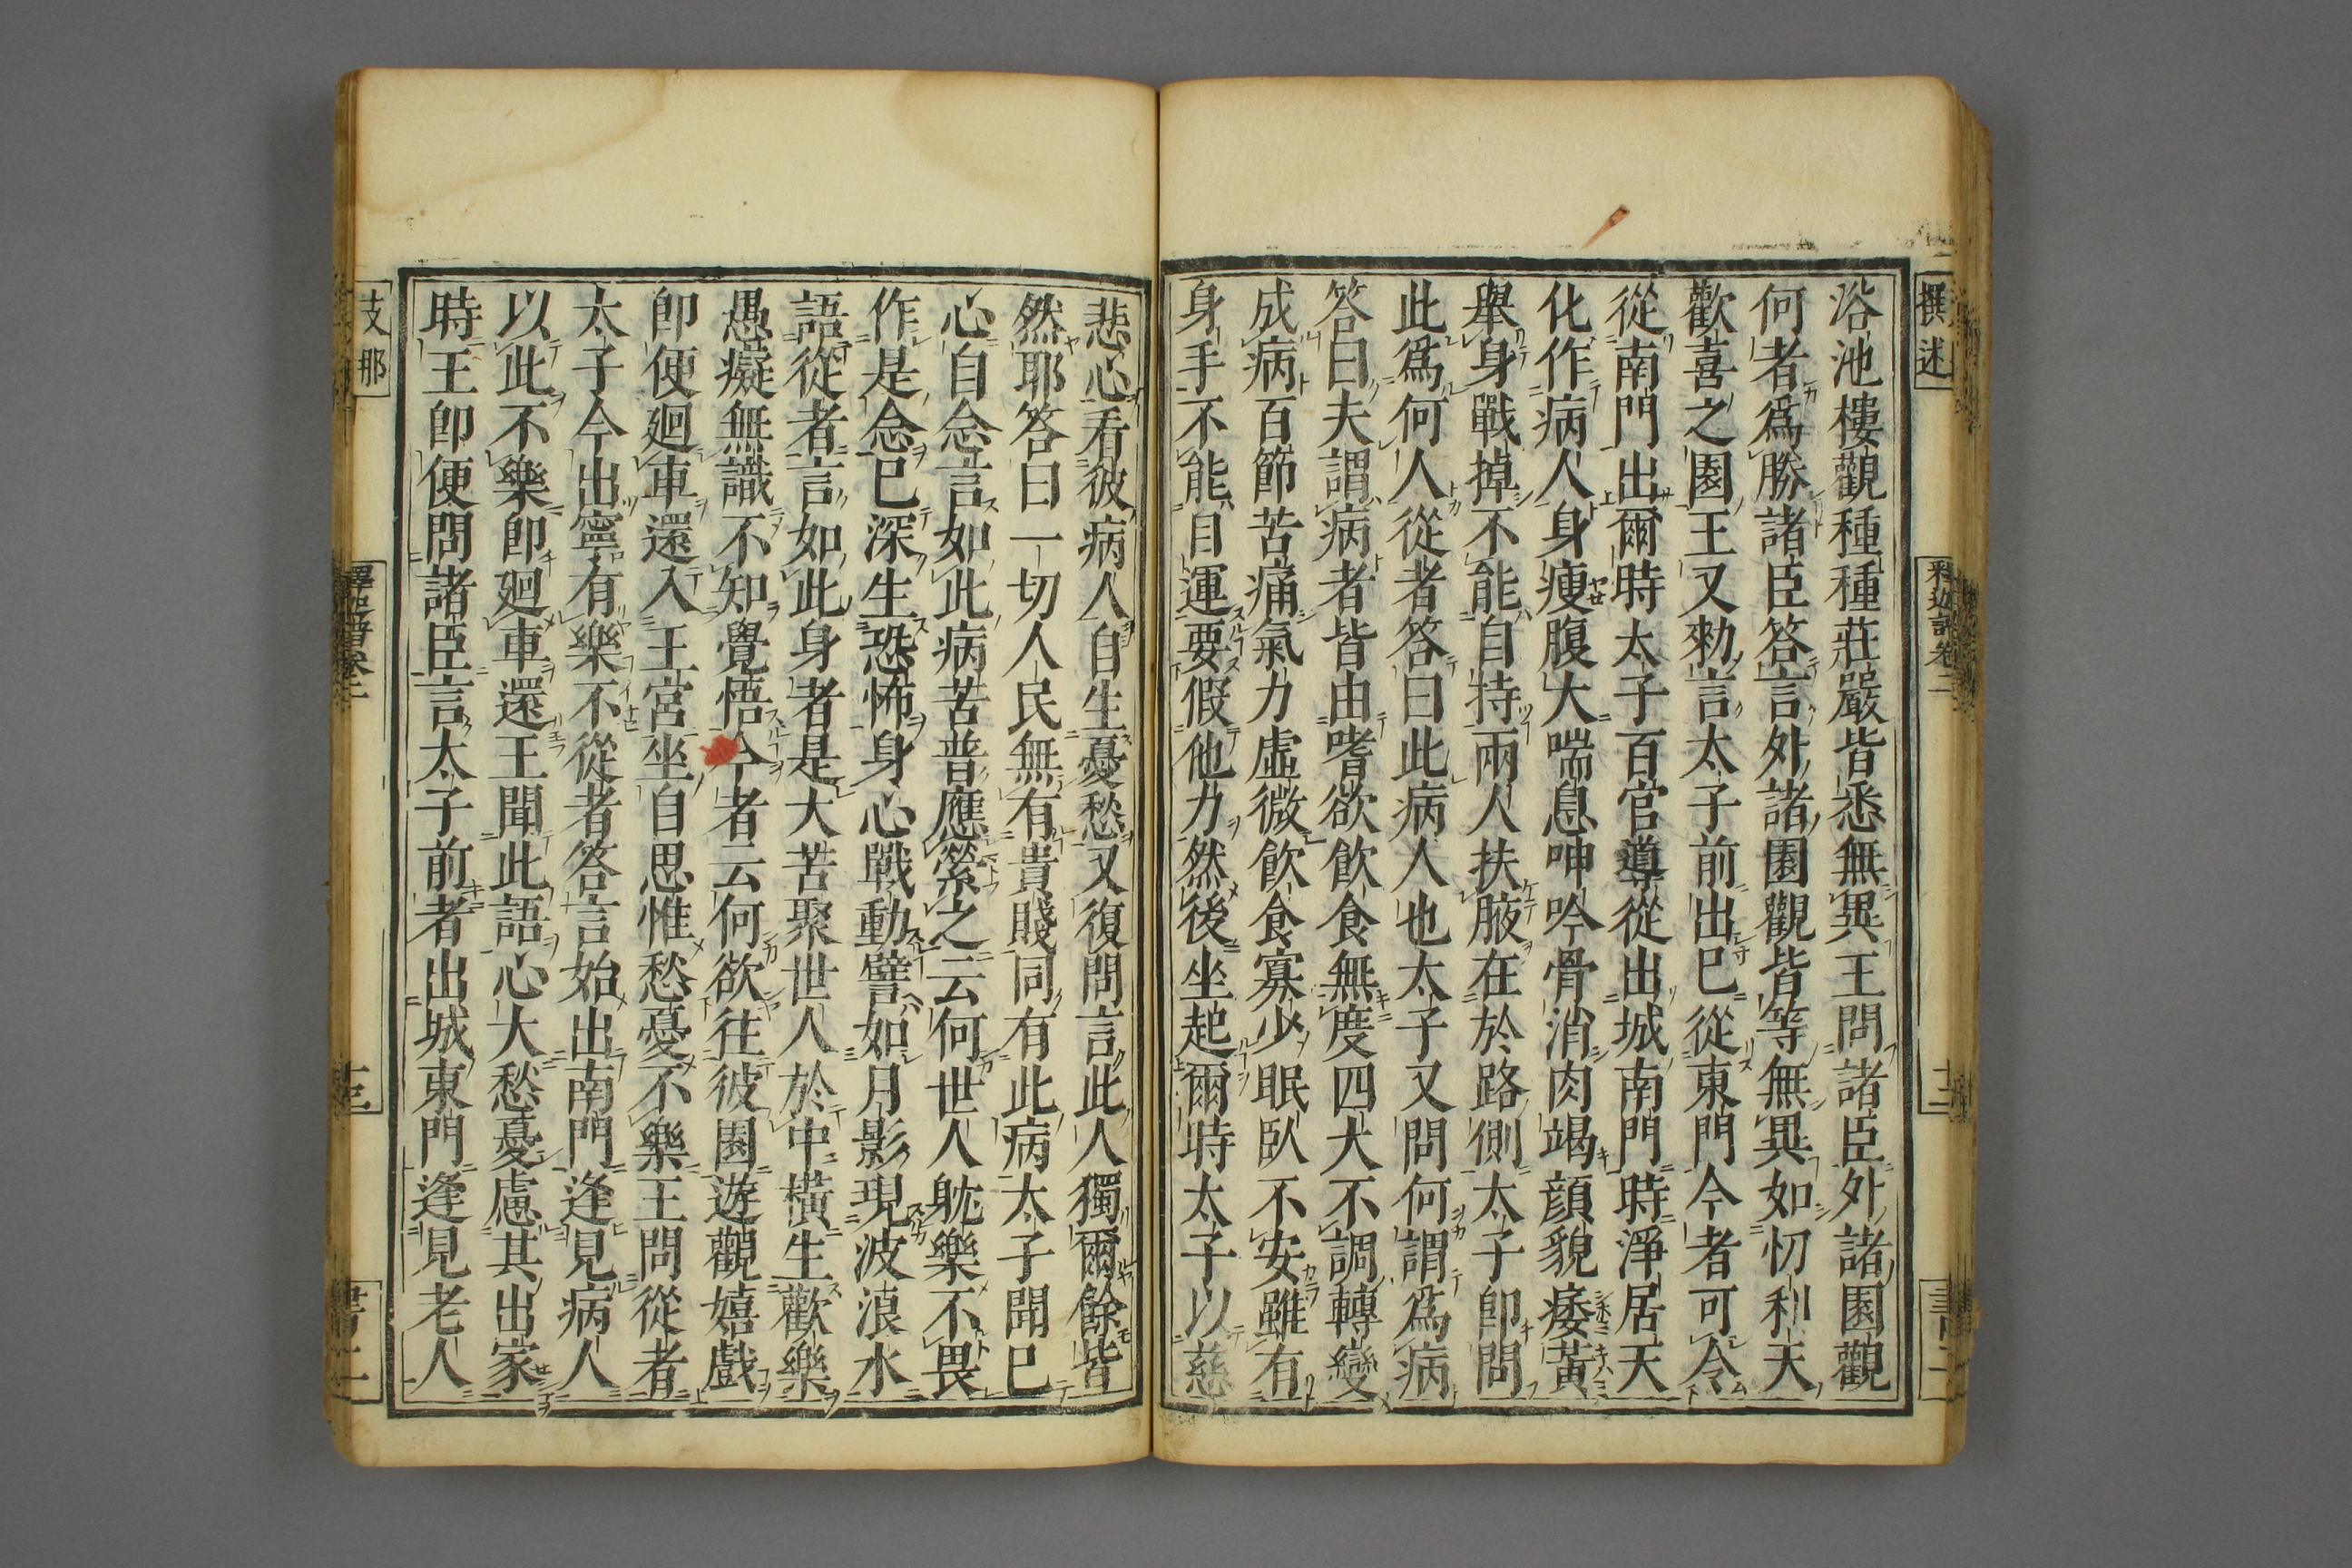 撰述
釋迦譜卷二
浴池樓觀種種莊嚴皆悉無異王問諸臣外諸園觀
何者爲勝諸臣答言外諸園觀皆等無異如忉利天
歡喜之園王又勑言太子前出已從東門今者可令
從南門出爾時太子百官導從出城南門時淨居天
化作病人身瘦腹大喘息呻吟骨消肉竭顔貌痿黃
舉身戰掉不能自持兩人扶腋在於路側太子即問
此爲何人從者答曰此病人也太子又問何謂爲病
答曰夫謂病者皆由嗜欲飲食無度四大不調轉變
成病百節苦痛氣力虛微飲食寡少眠臥不安雖有
身手不能自運要假他力然後坐起爾時太子以慈
悲心看彼病人自生憂愁又復問言此人獨爾餘皆
然耶答曰一切人民無有貴賤同有此病太子聞已
心自念言如此病苦普應縈之云何世人躭樂不畏
作是念已深生恐怖身心戰動譬如月影現波浪水
語從者言如此身者是大苦聚世人於中橫生歡樂
愚癡無識不知覺悟今者云何欲往彼園遊觀嬉戲
即便迴車還入王宮坐自思惟愁憂不樂王問從者
太子今出寧有樂不從者答言始出南門逢見病人
以此不樂即迴車還王聞此語心大愁憂慮其出家
時王即便問諸臣言太子前者出城東門逢見老人
支那
釋迦譜卷二